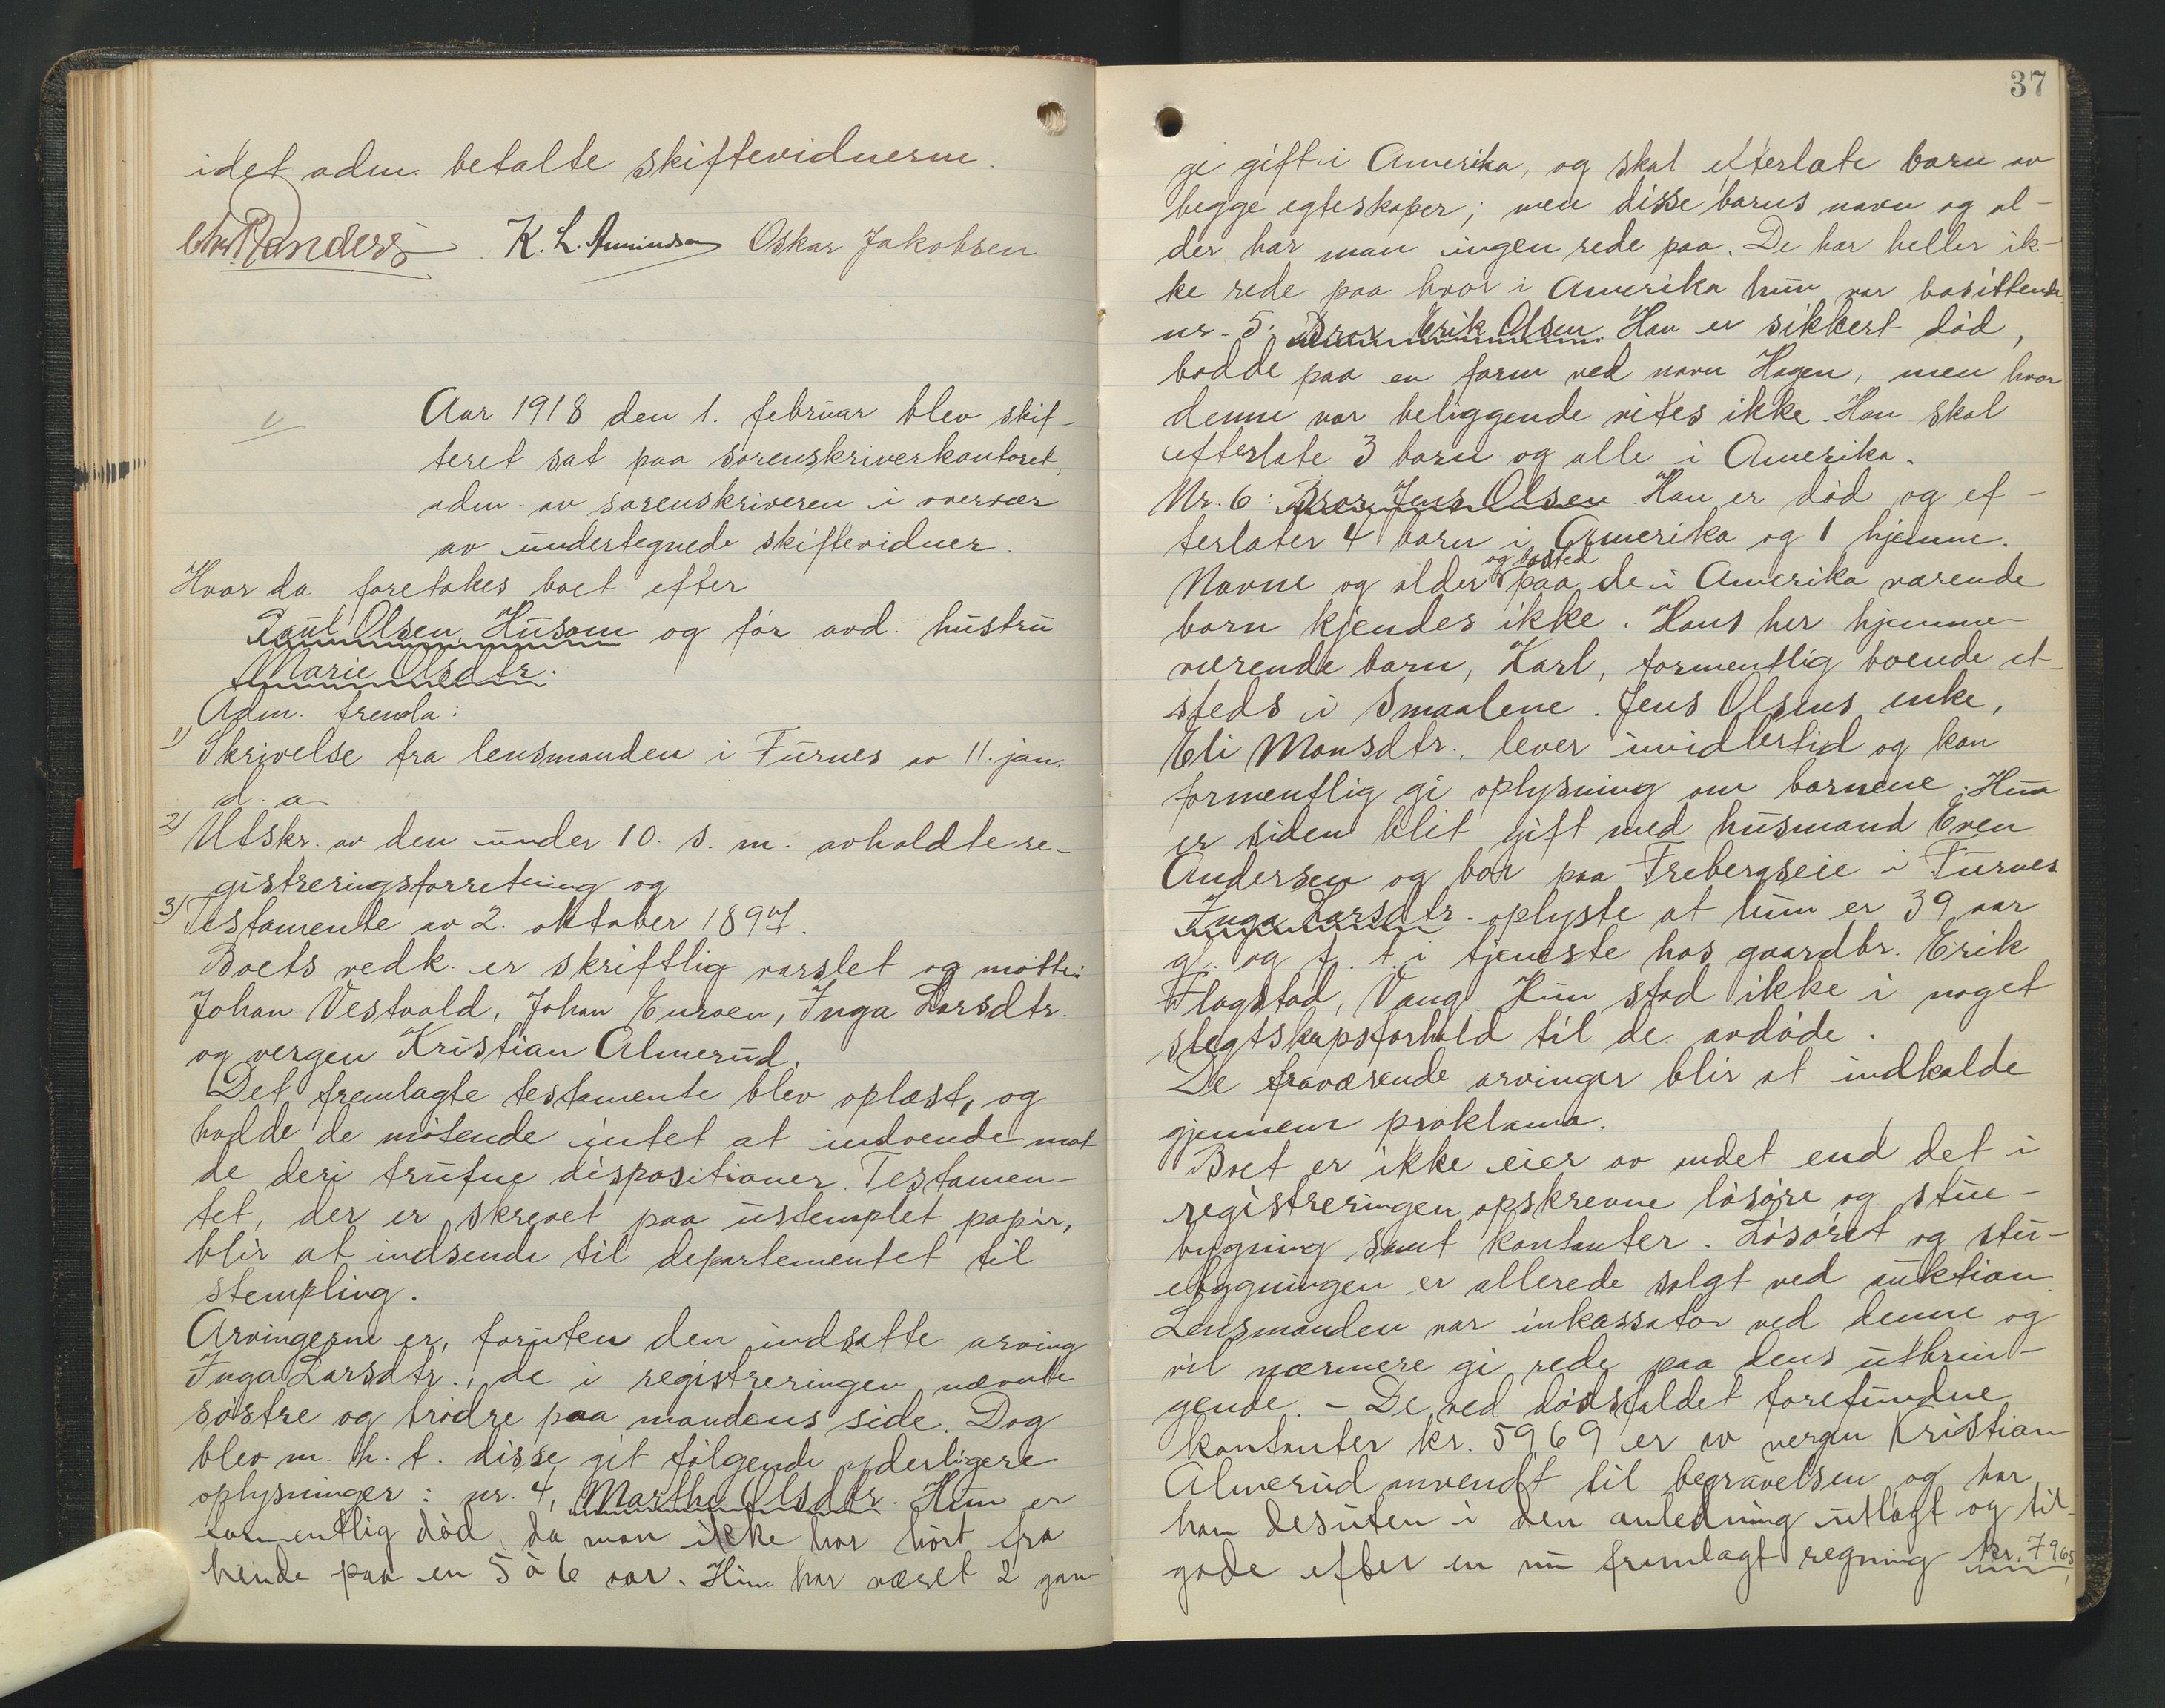 idet adm. betalte skiftevidnerne.
Chr. Randers K. L. Amundsen Oskar Jakobsen
Aar 1918 den 1. februar blev skif-
teret sat paa sorenskriverkontoret,
adm. av sorenskriveren i overvær
av undertegnede skiftevidner.
Hvor da foretokes boet efter
Paul Olsen, Husom og før avd. hustru
Marie Olsdtr.
Adm. fremla:
1) Skrivelse fra lensmanden i Furnes av 11. jan.
d. a.
2) Utskr. av den under 10. s. m. avholdte re-
gistreringsforretning og
3) Testamente av 2. oktober 1897.
Boets vedk. er skriftlig varslet og møtte:
Johan Vestvold, Johan Enroen, Inga Larsdtr.
og vergen Kristian Almerud.
Det fremlagte testamente blev oplæst, og
hadde de møtende intet at indvende mot
de deri trufne dispositioner. Testamen-
tet, der er skrevet paa ustemplet papir,
blir at indsende til departementet til
stempling.
Arvingerne er, foruten den indsatte arving
Inga Larsdtr., de i registreringen nævnte
søstre og brødre paa mandens side. Dog
blev m. h. t. disse git følgende yderligere
oplysninger: nr. 4, Marthe Olsdtr. Hun er
formentlig død, da man ikke har hørt fra
hende paa en 5 à 6 aar. Hun har været 2 gan-
37
ge gift i Amerika, og skal efterlate barn av
begge egteskaper; men disse barns navn og al-
der har man ingen rede paa. De har heller ik-
ke rede paa hvor i Amerika hun var bosittende.
nr. 5: Bror Erik Olsen. Han er sikkert død,
bodde paa en farm ved navn Hagen, men hvor
denne var beliggende vites ikke. Han skal
efterlate 3 barn og alle i Amerika.
Nr. 6: Bror Jens Olsen. Han er død og ef-
terlater 4 barn i Amerika og 1 hjemme.
og bosted
Navne og alder paa de i Amerika værende
barn kjendes ikke. Hans her hjemme
værende barn, Karl, formentlig boende et-
steds i Smaalene. Jens Olsens enke,
Eli Monsdtr., lever imidlertid og kan
formentlig gi oplysning om barnene. Hun
er siden blit gift med husmand Even
Andersen og bor paa Frebergseie i Furnes
Inga Larsdtr. oplyste at hun er 39 aar
g. og f. t. i tjeneste hos gaardbr. Erik
Flagstad, Vang. Hun stod ikke i noget
slegtskapsforhold til de avdøde.
De fraværende arvinger blir at indkalde
gjennem proklama.
Boet er ikke eier av andet end det i
registreringen opskrevne løsøre og stue-
bygning samt kontanter. Løsøret og stu-
ebygningen er allerede solgt ved auktion.
Lensmanden var inkassator ved denne og
vil nærmere gi rede paa dens utbrin-
gende. - De ved dødsfaldet forefundne
kontanter kr. 59,69 er av vergen Kristian
Almerud anvendt til begravelsen og har
han desuten i den anledning utlagt og til-
gode efter en nu fremlagt regning kr. 79,65,